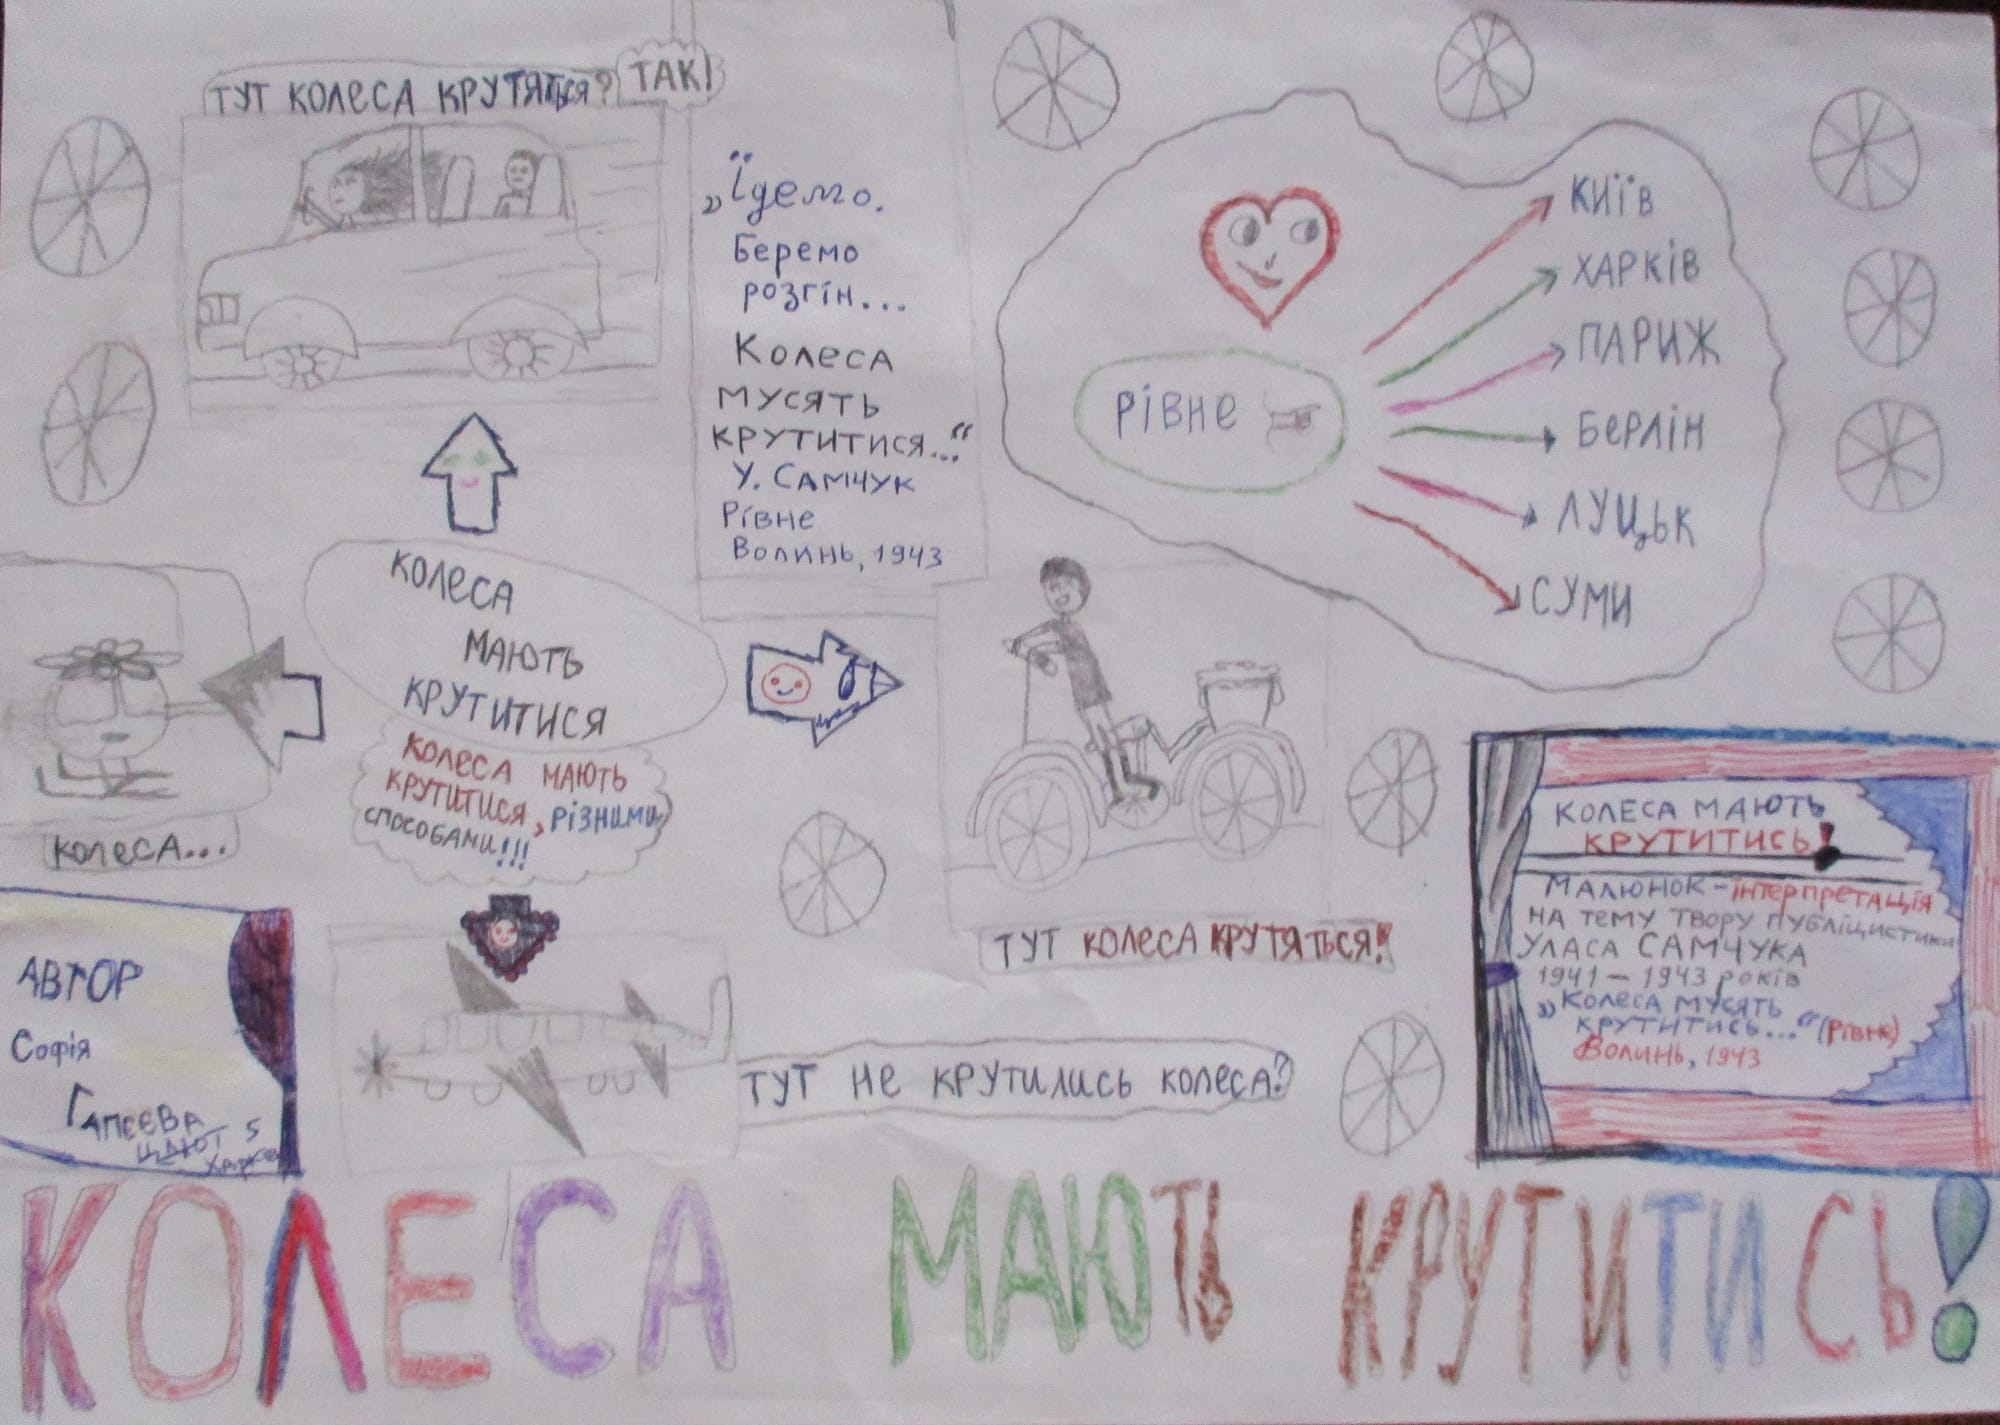 ТУТ КОЛЕСА КРУТЯТЬСЯ? ТАК!
„Їдемо.
Беремо
розгін...
Колеса
мусять
крутитися..."
У. Самчук
Рівне
Волинь, 1943
РІВНЕ
КИЇВ
ХАРКІВ
ПАРИЖ
БЕРЛІН
ЛУЦЬК
СУМИ
КОЛЕСА
МАЮТЬ
КРУТИТИСЯ
КОЛЕСА МАЮТЬ
КРУТИТИСЯ, РІЗНИМИ
СПОСОБАМИ!!!
КОЛЕСА...
ТУТ КОЛЕСА КРУТЯТЬСЯ!
ТУТ НЕ КРУТИЛИСЬ КОЛЕСА?
АВТОР
Софія
Гапєєва
КОЛЕСА МАЮТЬ
КРУТИТИСЬ!
МАЛЮНОК-інтерпретація
НА ТЕМУ ТВОРУ ПУБЛІЦИСТИКИ
УЛАСА САМЧУКА
1941-1943 років
„Колеса мусять
крутитись..." (Рівне)
Волинь, 1943
КОЛЕСА МАЮТЬ КРУТИТИСЬ!